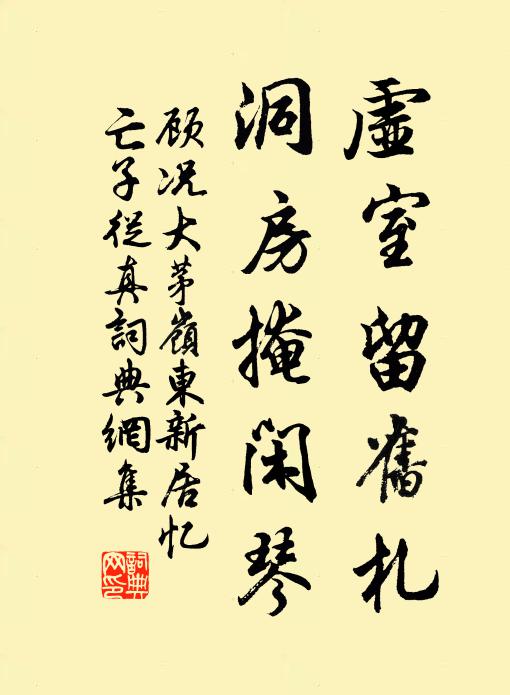 虛室留舊札
洞房掩閑琴
顾况大茅嶺東新居忆
亡子從真詞典網集
詞典網印